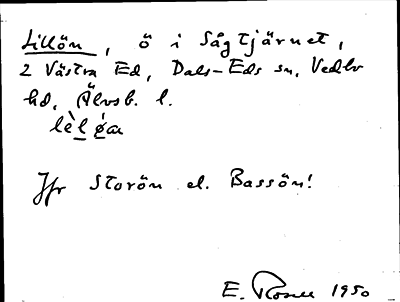 Lillön, ö i Sågtjärnet,
2 Västra Ed, Dals-Eds sn, Vedbo
hd, Älvsb. l.
Jfr Storön el. Bassön!
E. 1950